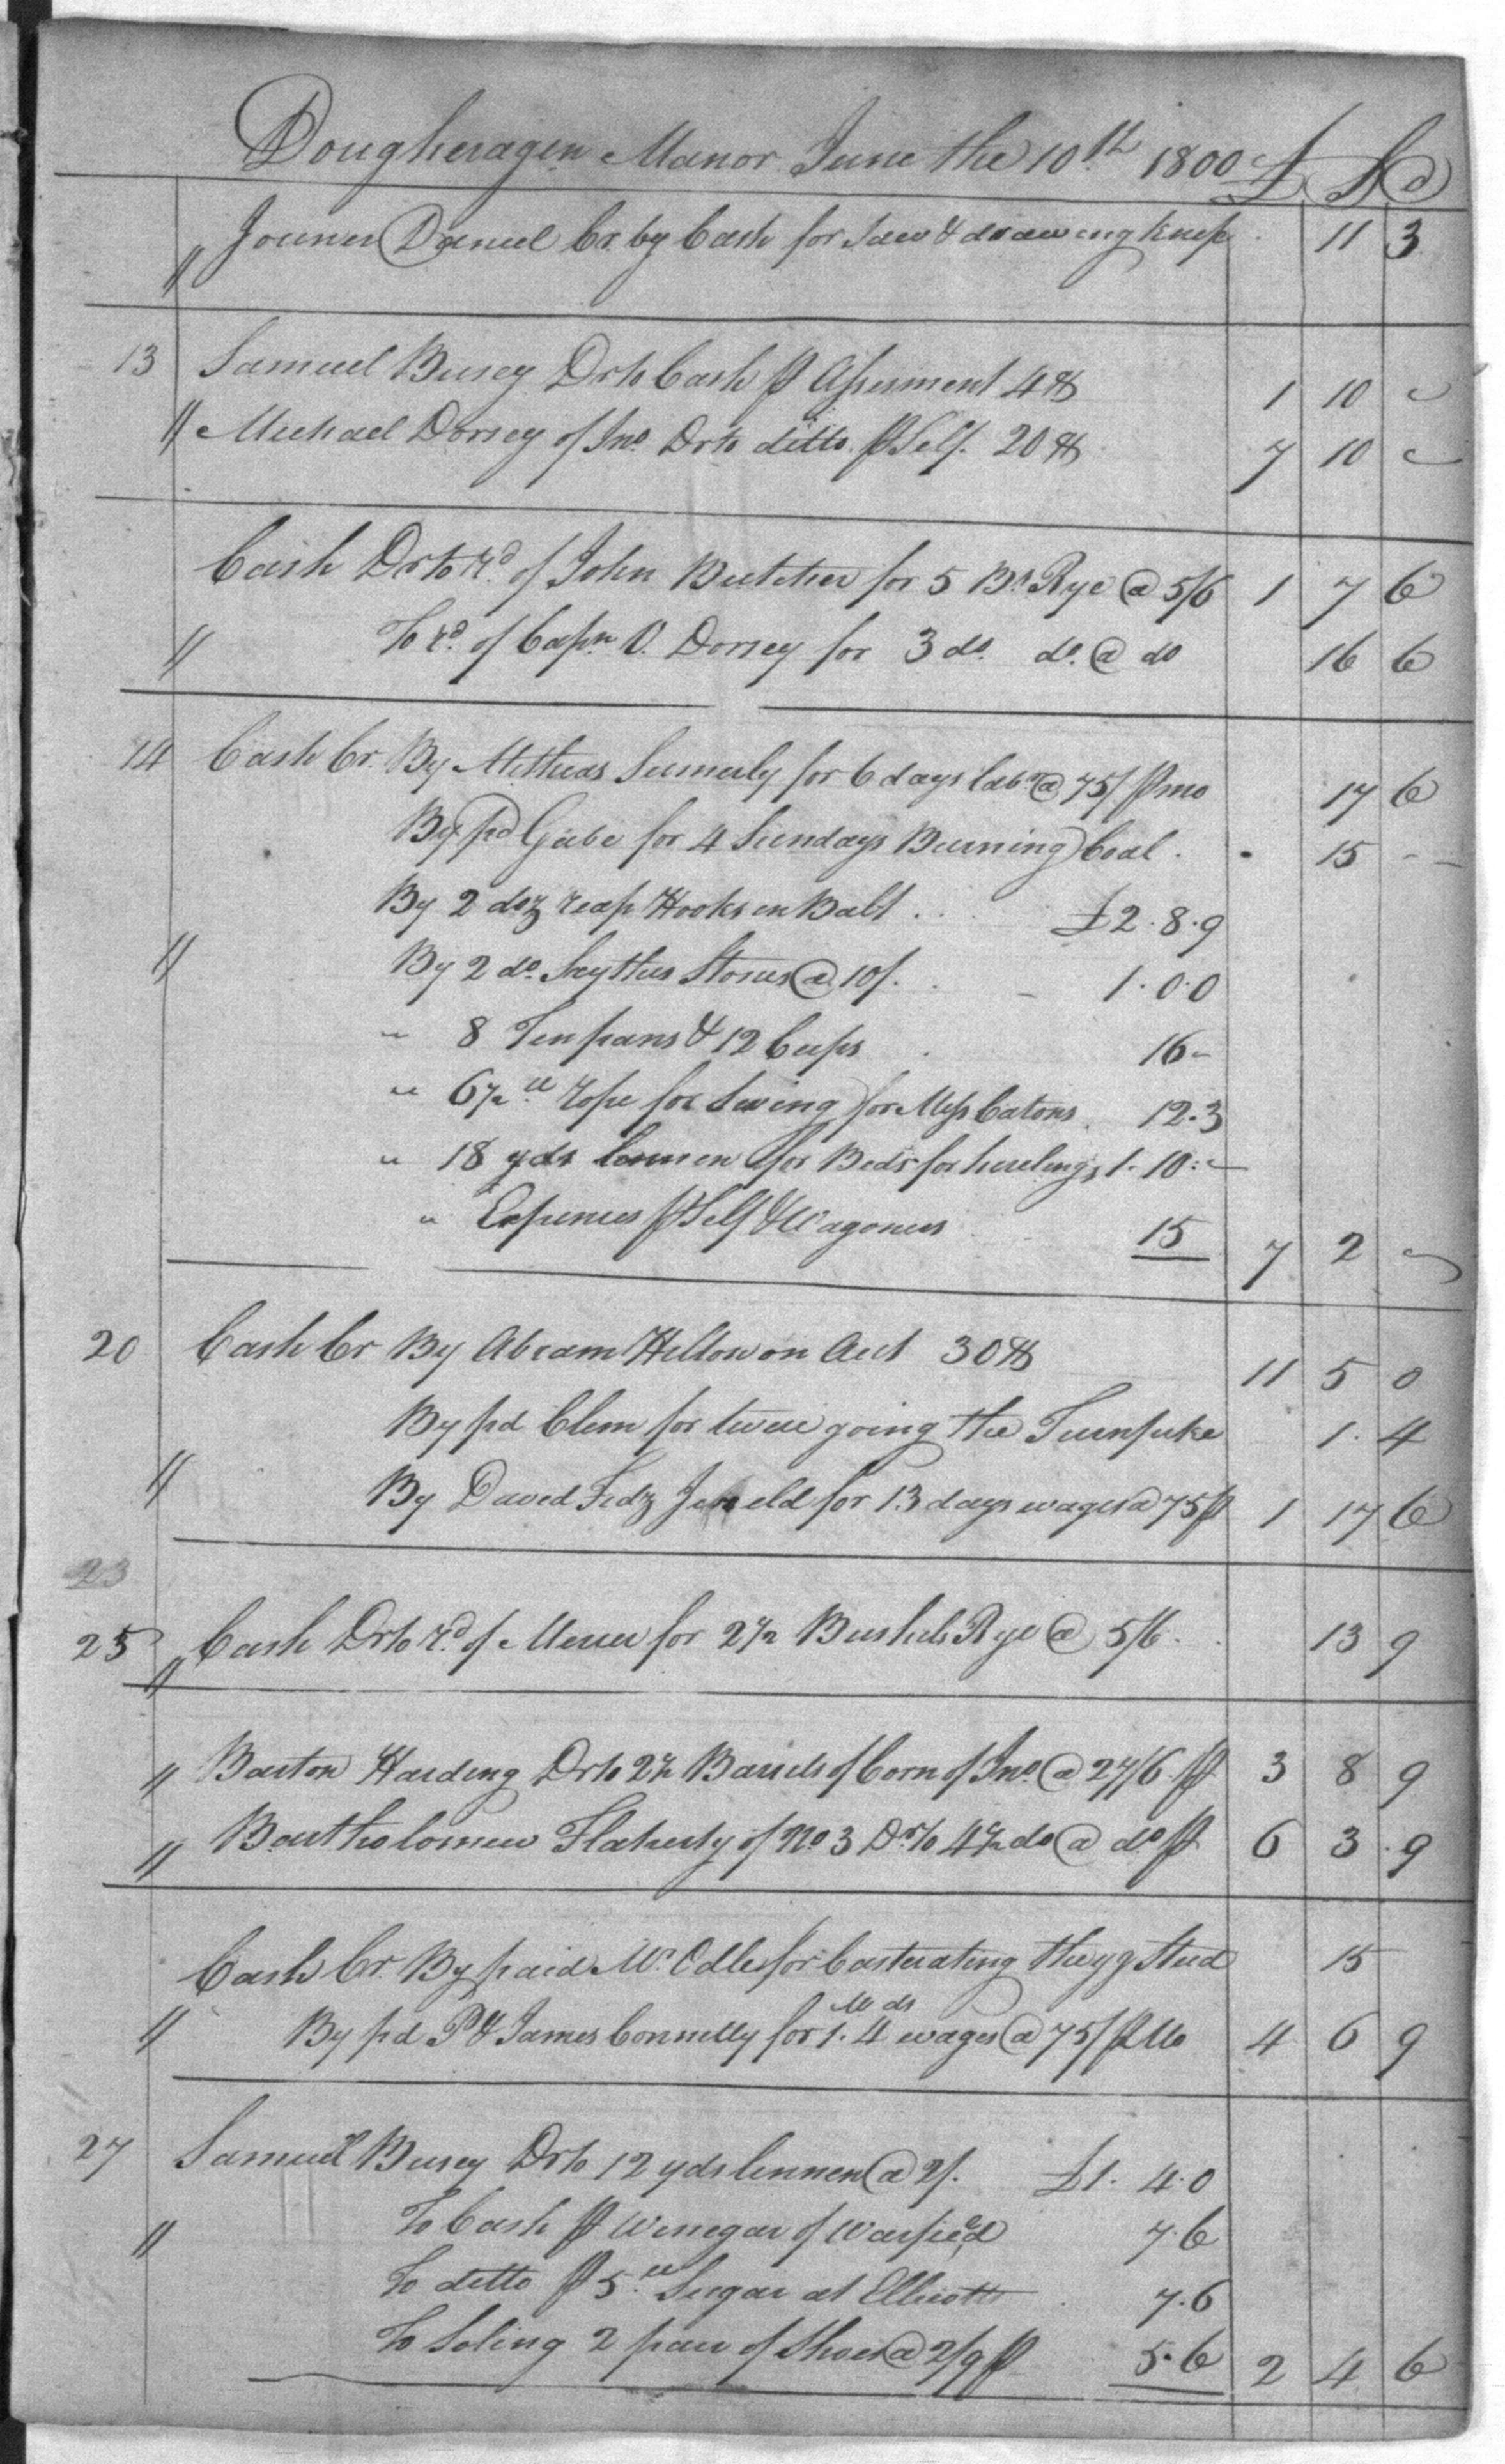 Dougheragen Manor June the 10th 1800 £ S d
" Joiner Daniel Cr. by Cash for Saw & drawing knife 11 3
13 Samuel Busey Dr to Cash ⅌ Assessment 4$ 1 10 -
" Michael Dorsey of Jno. Dr to ditto ⅌ Self. 20$ 7 10 -
Cash Dr to rd. of John Butcher for 5 Bs. Rye @ 5/6 1 7 6
" To rd. of Capn. V. Dorsey for 3 do. do. @ do 16 6
14 Cash Cr. By Methias Sumerly for 6 days labr @ 75/ ⅌ mo 17 6
By pd Gabe for 4 Sundays Burning Coal . 15 - -
By 2 doz reap Hooks in Balt . . £2.8.9
" By 2 do. Scythes Stones @ 10/. . - 1.0.0
" 8 Tin pans & 12 Cups 16-
" 6½ ll rope for Swing for Miss Catons 12.3
" 18 yds linnen for Beds for hirelings 1.10.-
" Expences ⅌ Self & Wagoners 15 7 2 -
20 Cash Cr By Abram Hilton on Act 30$ 11 5 0
By pd Clem for twice going the Turnpike 1. 4
" By David Fidz Jereld for 13 days wages @ 75 ⅌ 1 17 6
23
25 " Cash Dr to rd. of Mercer for 2½ Bushels Rye @ 5/6. . 13 9
" Barton Harding Dr to 2½ Barrels of Corn of Jno. @ 27/6 ⅌ 3 8 9
" Bartholomew Flaherty of No 3 Dr. to 4½ do @ do. ⅌ 6 3 9
Cash Cr. By paid Mr Odle for Casterating the yg Stud 15
Mo ds
" By pd P & James Connelly for 1. 4 wages @ 75/ ⅌ Mo 4 6 9
27 Samuel Busey Dr to 12 yds linnen @ 2/. £1. 4.0
" To Cash ⅌ Winegar of Warfield 7.6
To ditto ⅌ 5 ll Sugar at Ellicotts . 7.6
To Soling 2 pair of Shoes @ 2/9 ⅌ 5.6 2 4 6